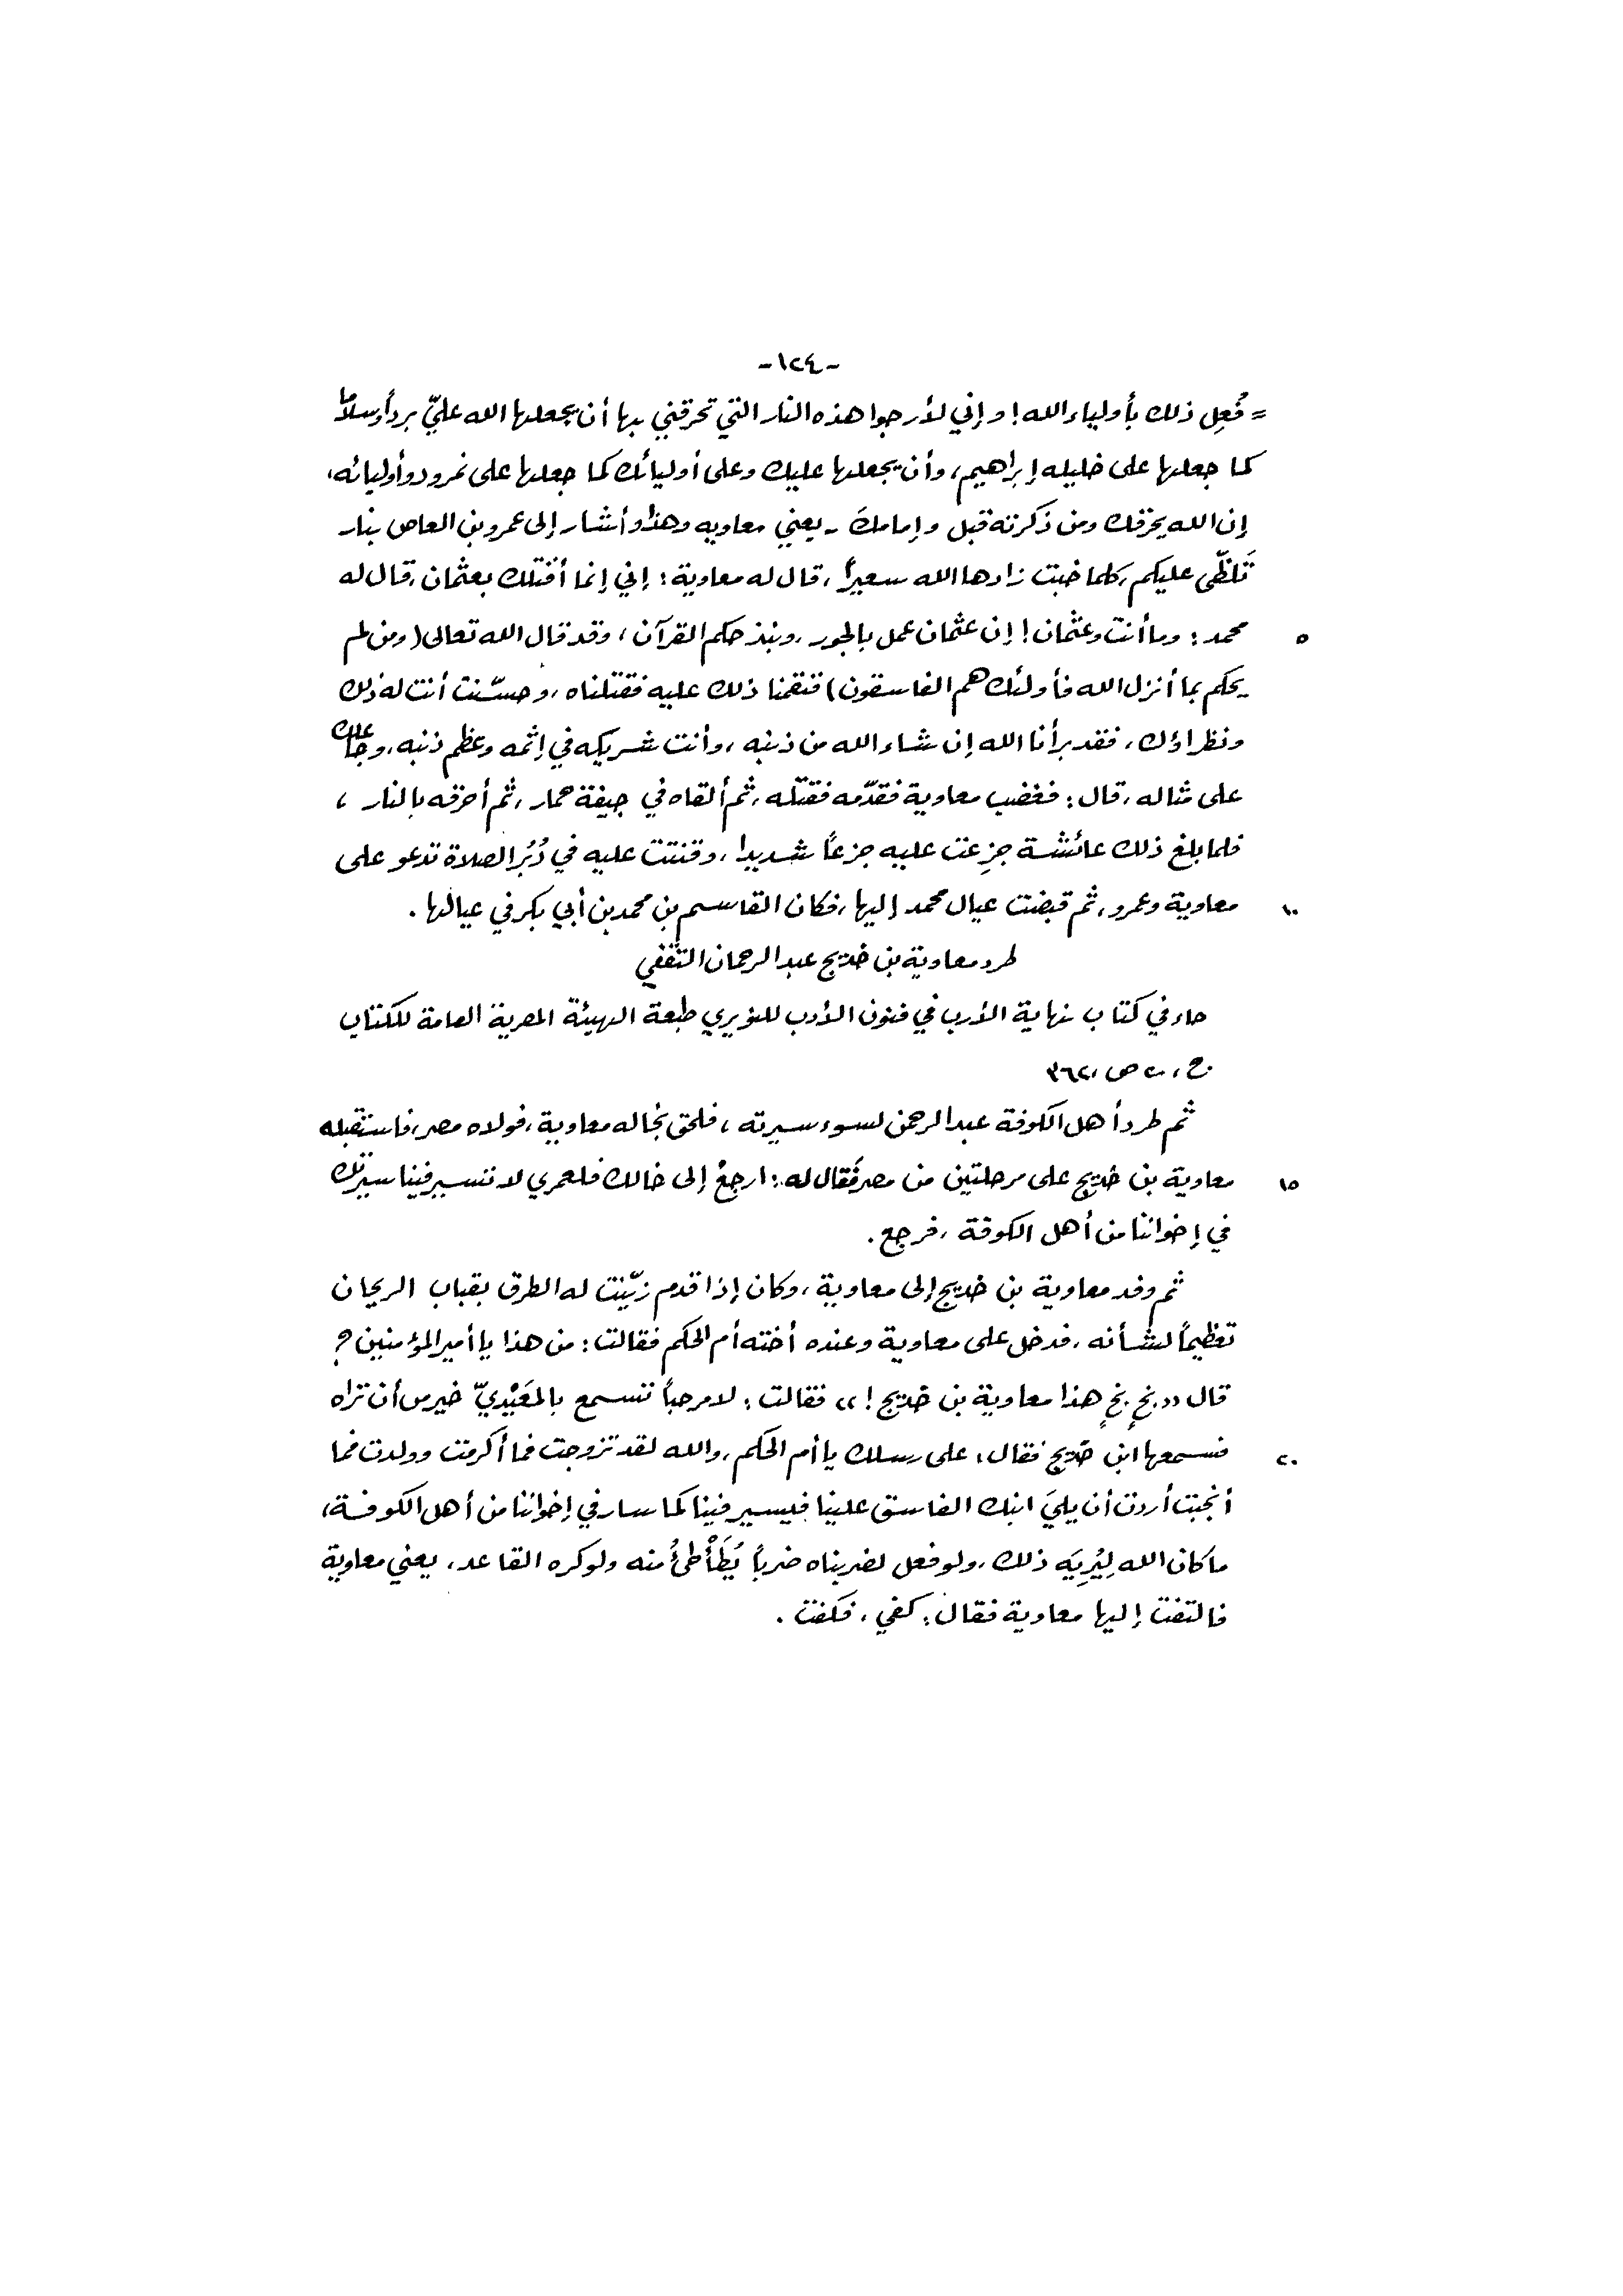 -١٢٤-
= فُعِل ذلك بأولياء الله! وإني لأرجوا هذه النار التي تحرقني بها أن يجعلها الله عليّ برداً وسلاماً
كما جعلها على خليله إبراهيم، وأن يجعلها عليك وعلى أوليائك كما جعلها على نمرود وأوليائه،
إن الله يحرقك ومن ذكرته قبل وإمامك - يعني معاويه وهذا وأشار إلى عمرو بن العاص بنار
تَلظّى عليكم، كلما خبت زادها الله سعيراً، قال له معاوية: إني إنما أقتلك بعثمان، قال له
محمد: وما أنت وعثمان! إن عثمان عمل بالجور، ونبذ حكم القرآن، وقد قال الله تعالى (ومن لم ٥
يحكم بما أنزل الله فأولئك هم الفاسقون) فنقمنا ذلك عليه فقتلناه، وحسّنت أنت له ذلك
ونظراؤك، فقد برأنا الله إن شاء الله من ذنبه، وأنت شريكه في إثمه وعظم ذنبه، وجاعلك
على مثاله، قال: فغضب معاوية فقدّمه فقتله، ثم ألقاه في جيفة حمار، ثم أحرقه بالنار،
فلما بلغ ذلك عائشة جزِعت عليه جزعاً شديدا، وقنتت عليه في دُبُر الصلاة تدعو على
معاوية وعمرو، ثم قبضت عيال محمد إليها، فكان القاسم بن محمد بن أبي بكر في عيالها. ١٠
طرد معاوية بن خديج عبد الرحمان الثقفي
جاء في كتاب نهاية الأرب في فنون الأدب للنويري طبعة الهيئة المصرية العامة للكتاب
ج، ٢٠ ص، ٣٦٢
ثم طرد أهل الكوفة عبد الرحمن لسوء سيرته، فلحق بخاله معاوية، فولاه مصر، فاستقبله
معاوية بن خديج على مرحلتين من مصر فقال له: ارجعْ إلى خالك فلعمري لا تسير فينا سيرتك ١٥
في إخواننا من أهل الكوفة، فرجع.
ثم وفد معاوية بن خديج إلى معاوية، وكان إذا قدم زيّنت له الطرق بقباب الريحان
تعظيماً لشأنه، فدخل على معاوية وعنده أخته أم الحكم فقالت: من هذا يا أمير المؤمنين؟
قال «بخٍ بخٍ هذا معاوية بن خديج!» فقالت: لا مرحباً تسمع بالمعَيْديّ خير من أن تراه
فسمعها ابن خديج فقال: على رسلك يا أم الحكم، والله لقد تزوجت فما أكرمت وولدت فما ٢٠
أنجبت أردت أن يليَ ابنك الفاسق علينا فيسير فينا كما سار في إخواننا من أهل الكوفة،
ما كان الله لِيُرِيَه ذلك، ولو فعل لضربناه ضرباً يُطَأْطئُ منه ولو كره القاعد، يعني معاوية
فالتفت إليها معاوية فقال: كفي، فكفت.